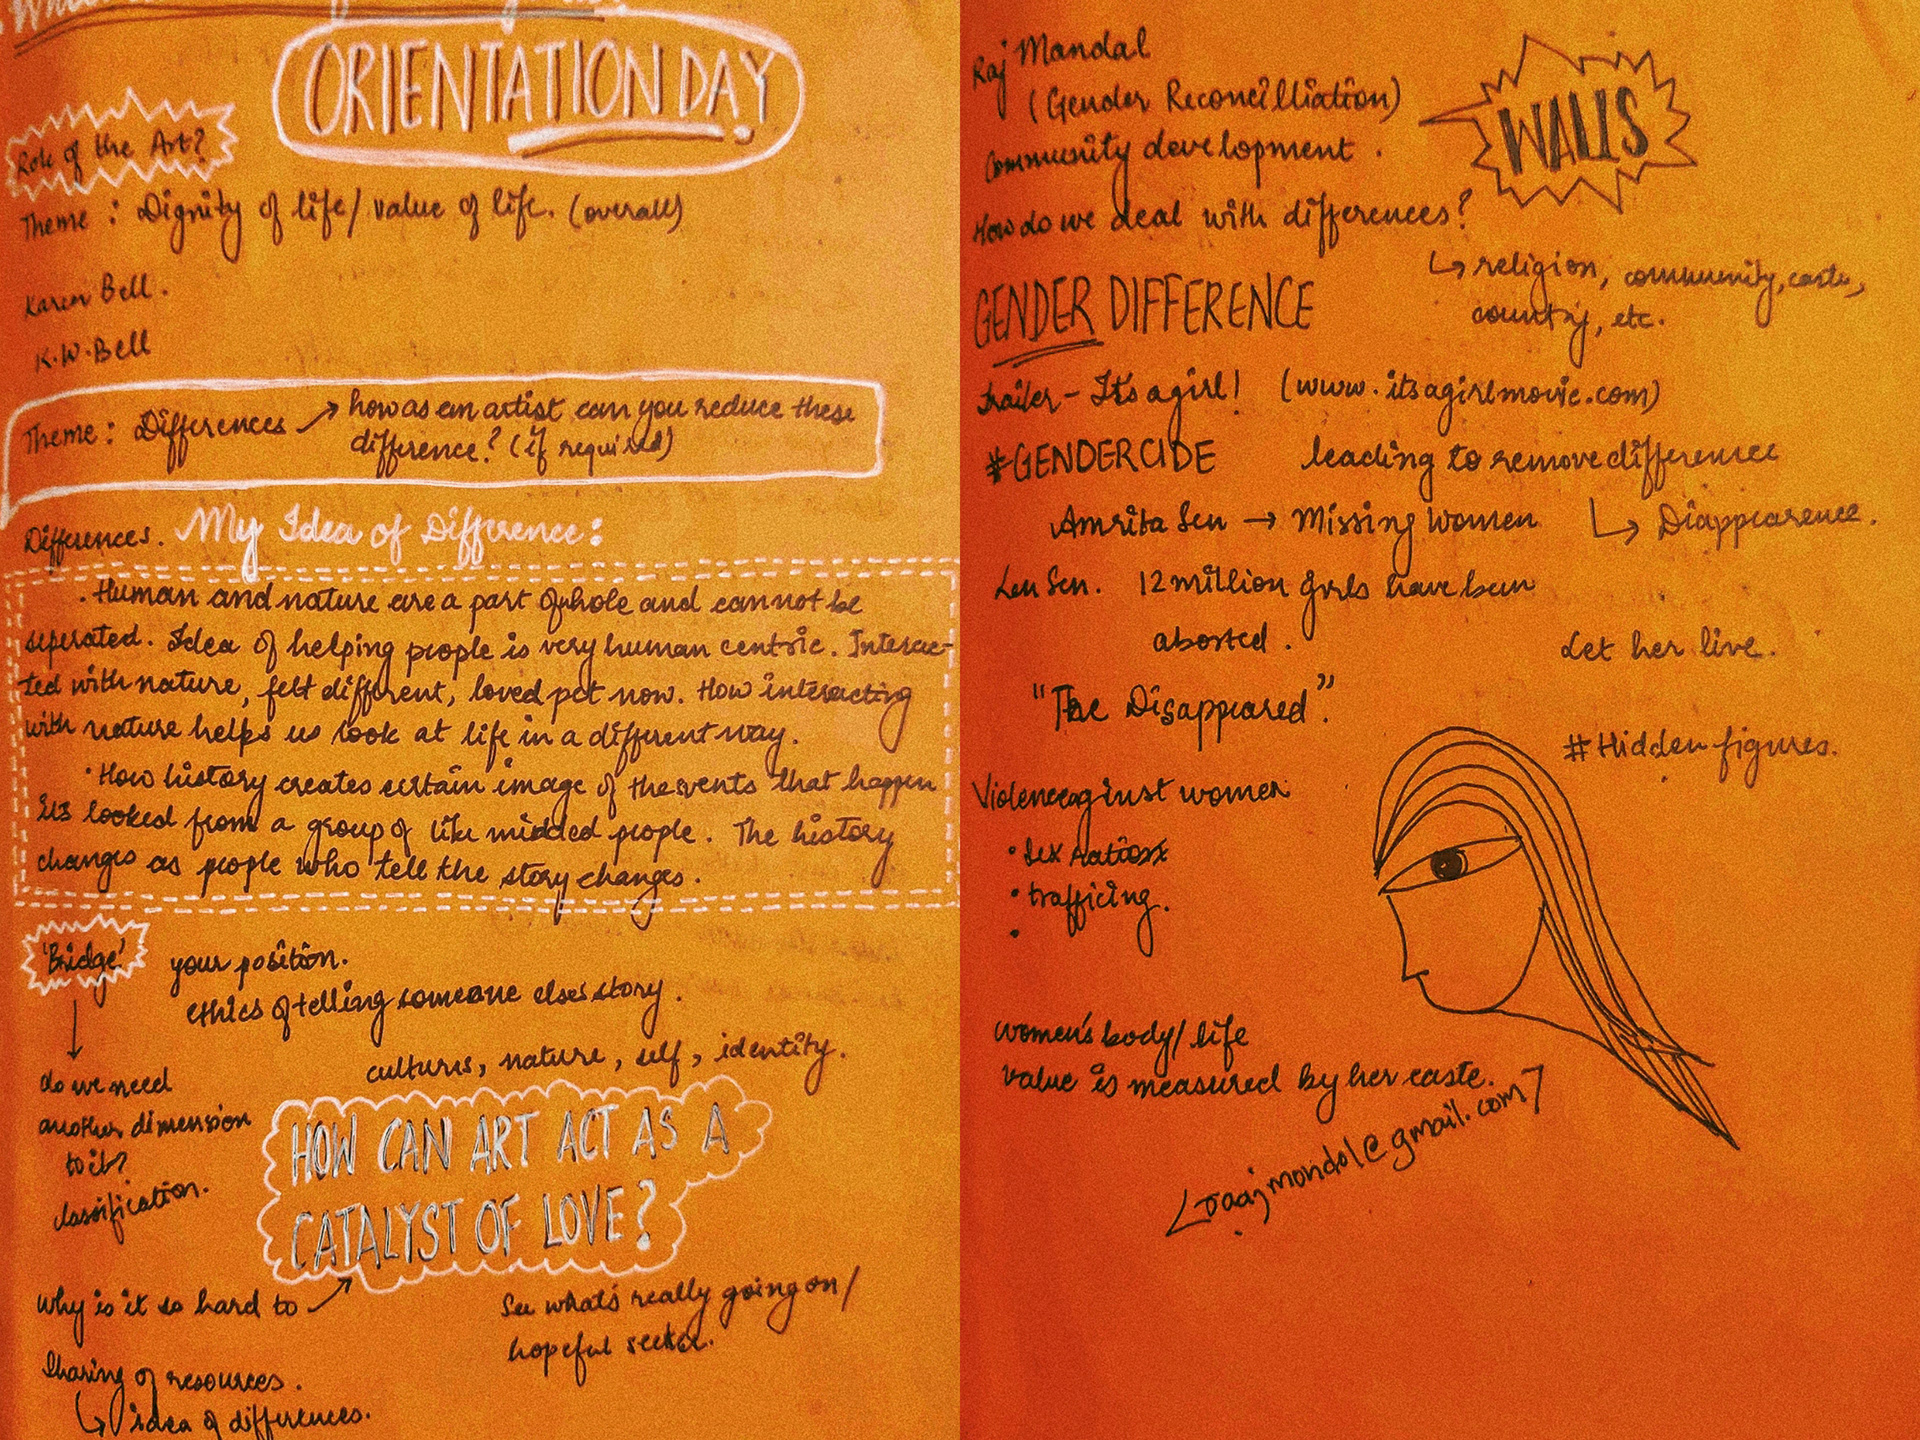 ORIENTATION DAY
Role of the Art?
Theme : Dignity of life/ value of life. (overall)
Karen Bell.
K.W. Bell
Theme : Differences → how as an artist can you reduce these
difference? (if required)
Differences. My Idea of Difference:
. Human and nature are a part of whole and cannot be
seperated. Idea of helping people is very human centric. Interac-
ted with nature, felt different, loved pet now. How interacting
with nature helps us look at life in a different way.
. How history creates certain image of the events that happen
its looked from a group of like minded people. The history
changes as people who tell the story changes.
'Bridge' your position.
ethics of telling someone elses story.
cultures, nature, self, identity.
do we need
another dimension
to it?
classification.
HOW CAN ART ACT AS A
CATALYST OF LOVE?
Why is it so hard to
See what's really going on/
hopeful seeker.
Sharing of resources.
↳ idea of differences.
Raj Mandal
(Gender Reconcilliation)
Community development.
WALLS
How do we deal with differences?
↳ religion, community, caste,
country, etc.
GENDER DIFFERENCE
trailer - It's a girl! (www.itsagirlmovie.com)
#GENDERCIDE leading to remove difference
Amrita Sen → Missing Women ↳ Diappearence.
Sen. 12 million girls have been
aborted.
Let her live.
"The Disappeared".
#Hidden figures.
Violence against women
• Sex
• trafficing.
•
women's body/ life
value is measured by her caste.
raajmondol@gmail.com